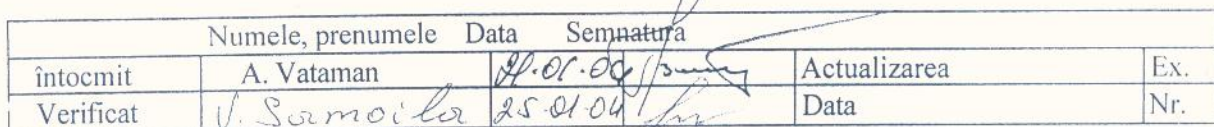 Numele, prenumele Data Semnatura
întocmit A. Vataman Actualizarea Ex.
Verificat V. Samoila 25.01.04 Data Nr.